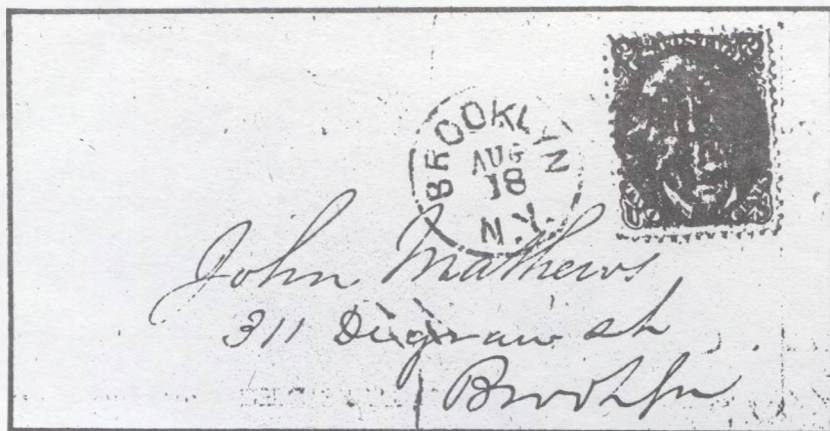 BROOKLYN
AUG
18
N.Y.
John Mathews
311 Degraw st
Brooklyn